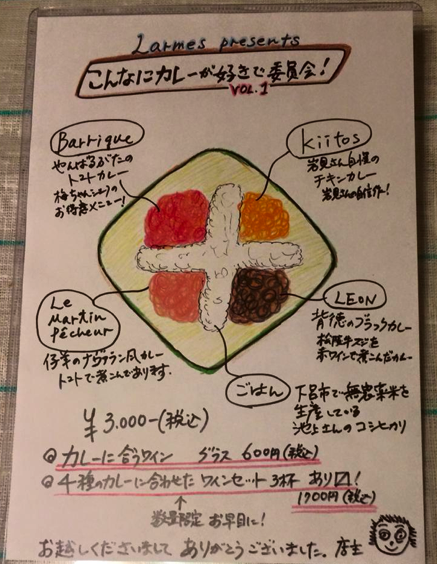 Larmes presents
こんなにカレーが好きで委員会!
VOL.1
Barrique
やんばるぶたの
トマトカレー
梅ちゃんシェフの
お得意メニュー!
kiitos
岩見さん自慢の
チキンカレー
岩見さんの自信作!
Le
Martin
Pêcheur
仔羊のナヴァラン風カレー
トマトで煮こんであります。
LEON
背徳のブラックカレー
松阪牛スジを
赤ワインで煮こんだカレー
ごはん
下呂市で無農薬米を
生産している
池上さんのコシヒカリ
¥3,000-(税込)
カレーに合うワイン グラス 600円(税込)
4種のカレーに合わせた ワインセット 3杯 あり〼!
1700円(税込)
↑
数量限定 お早目に!
お越しくださいまして ありがとうございました。 店主